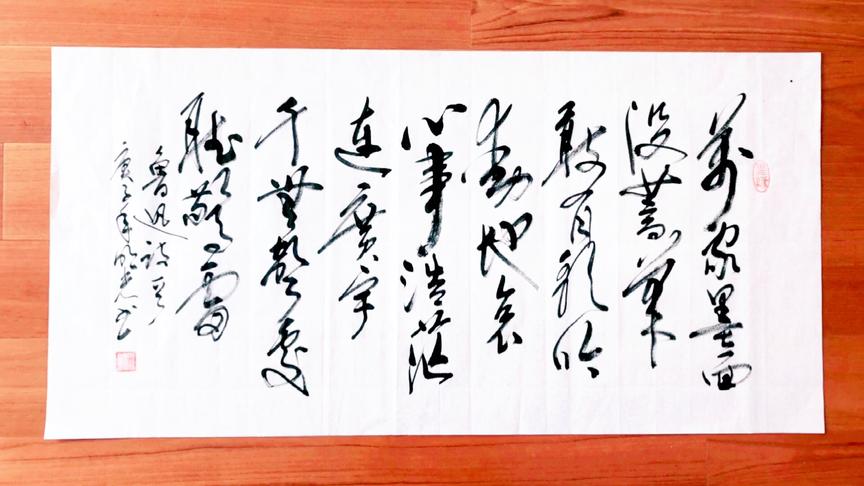 萬家墨面
没蒿萊
敢有歌吟
動地哀
心事浩茫
連廣宇
于無聲處
聽驚雷
魯迅詩
庚子年明光书